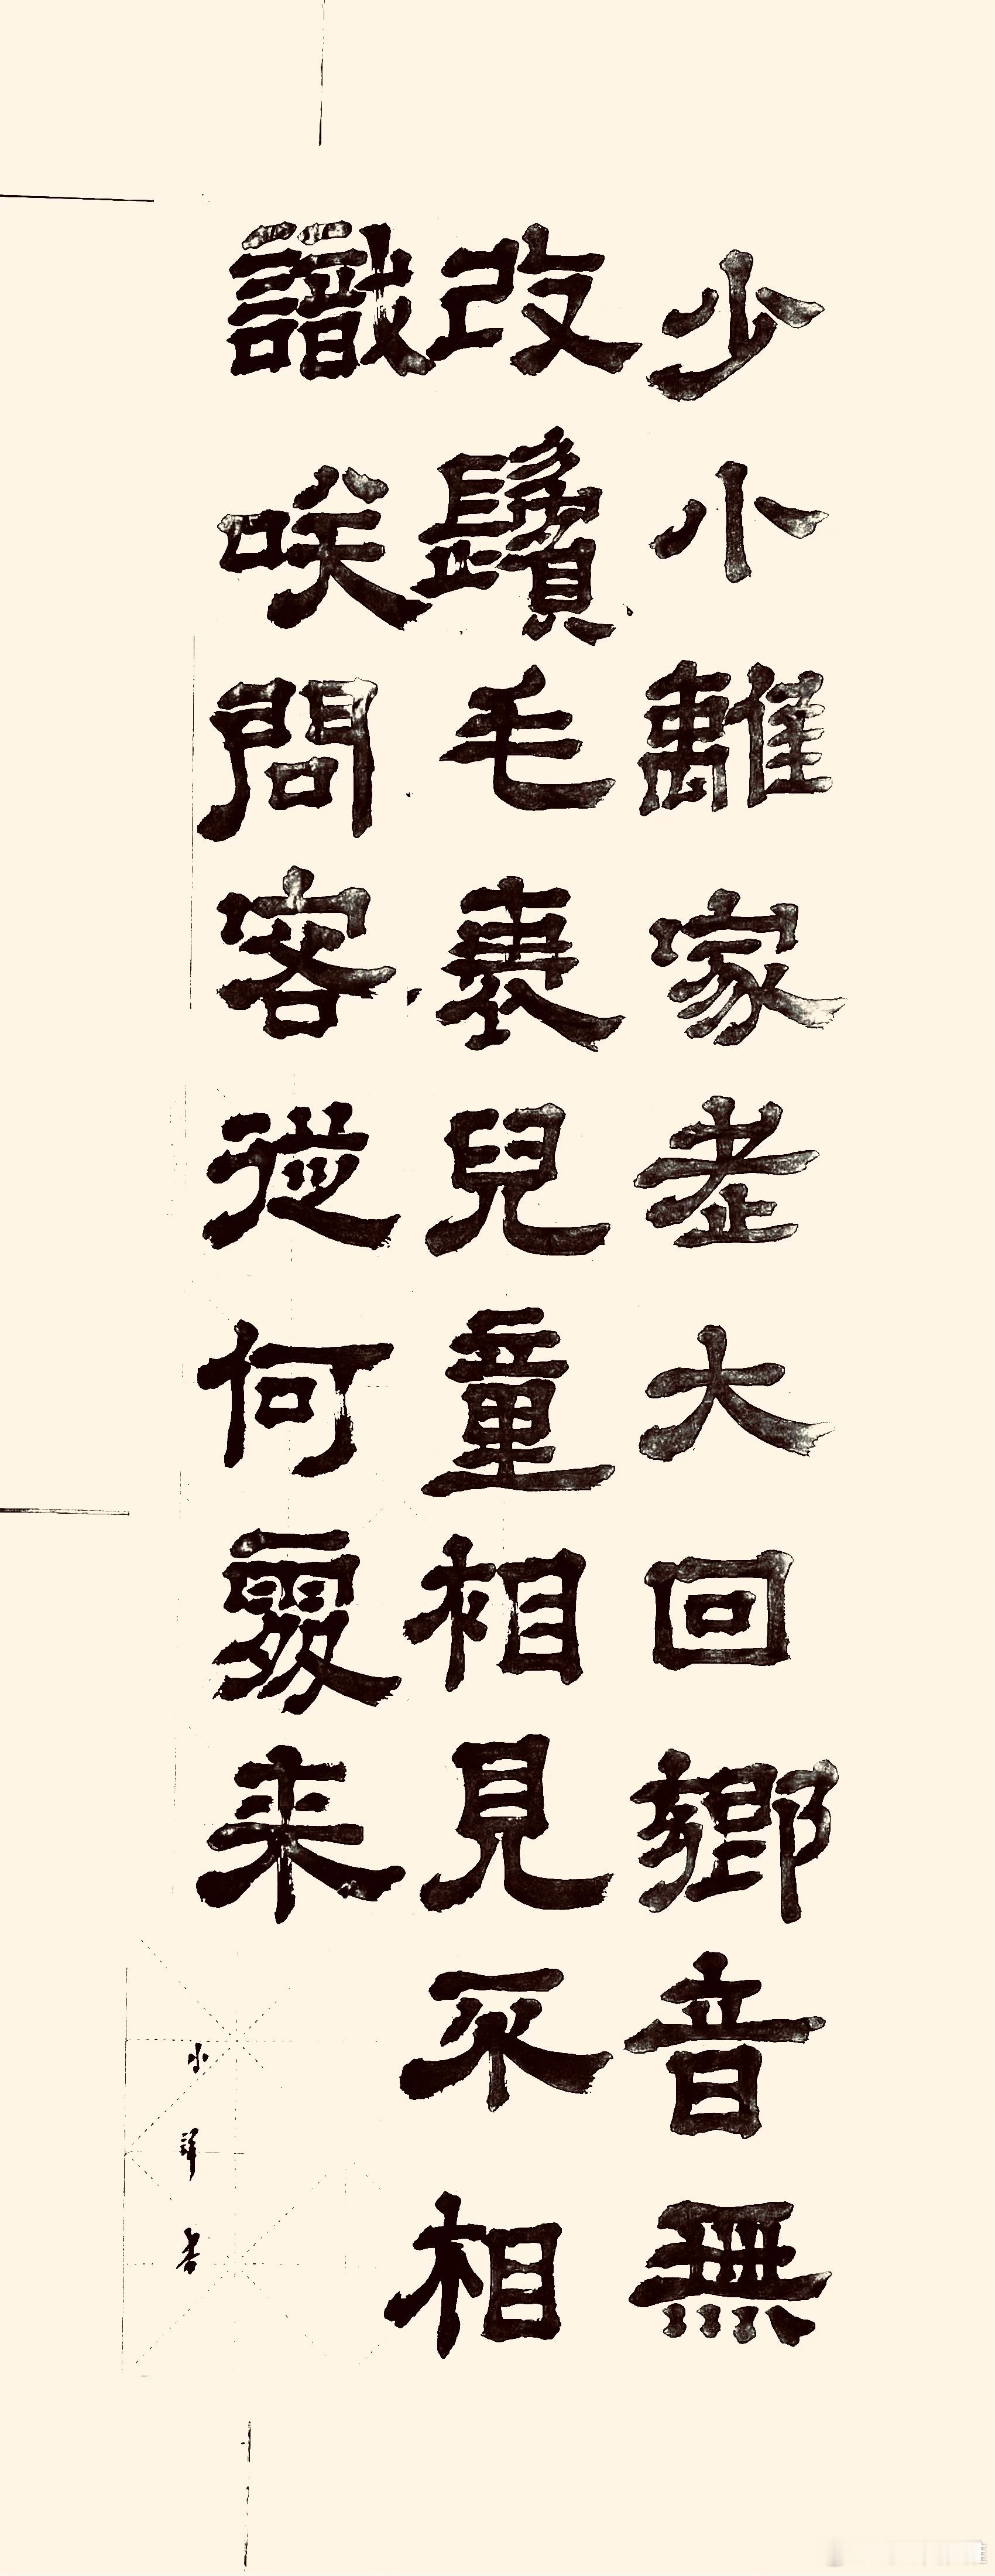 少小離家老大回鄉音無
改鬢毛衰兒童相見不相
識咲問客從何處来
小祥書